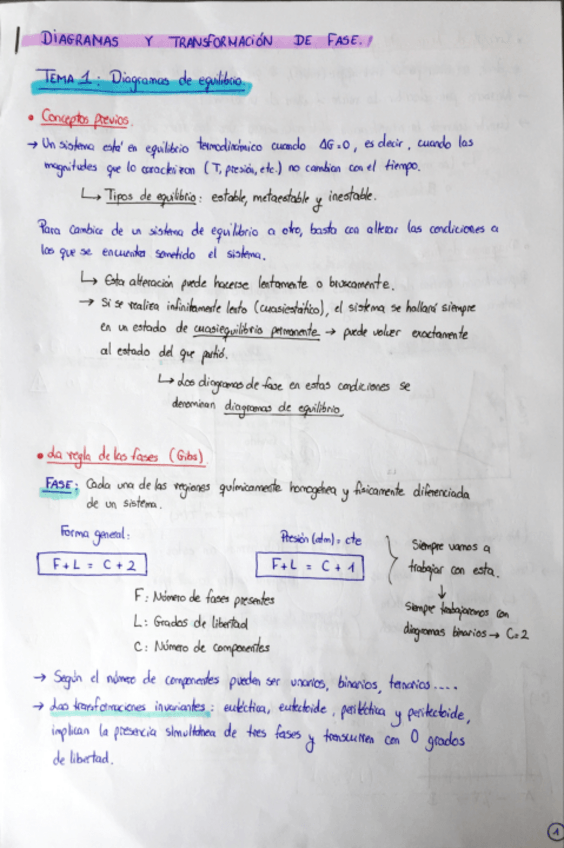 DIAGRAMAS Y TRANSFORMACIÓN DE FASE.
TEMA 1: Diagramas de equilibrio.
• Conceptos previos.
→ Un sistema está en equilibrio termodinámico cuando ΔG=0, es decir, cuando las
magnitudes que lo caracterizan (T, presión, etc.) no cambian con el tiempo.
↳ Tipos de equilibrio: estable, metaestable y inestable.
Para cambiar de un sistema de equilibrio a otro, basta con alterar las condiciones a
las que se encuentra sometido el sistema.
↳ Esta alteración puede hacerse lentamente o bruscamente.
→ Si se realiza infinitamente lento (cuasiestático), el sistema se hallará siempre
en un estado de cuasiequilibrio permanente. → puede volver exactamente
al estado del que partió.
↳ Los diagramas de fase en estas condiciones se
denominan diagramas de equilibrio.
• La regla de las fases (Gibs).
FASE: Cada una de las regiones químicamente homogénea y físicamente diferenciada
de un sistema.
Forma general:
F+L = C+2
Presión (atm) = cte
F+L = C+1
Siempre vamos a
trabajar con esta.
↓
Siempre trabajaremos con
diagramas binarios → C=2
F: Número de fases presentes
L: Grados de libertad
C: Número de componentes
→ Según el número de componentes pueden ser unarios, binarios, ternarios....
→ Las transformaciones invariantes: eutéctica, eutectoide, peritéctica y peritectoide,
implican la presencia simultánea de tres fases y transcurren con 0 grados
de libertad.
1